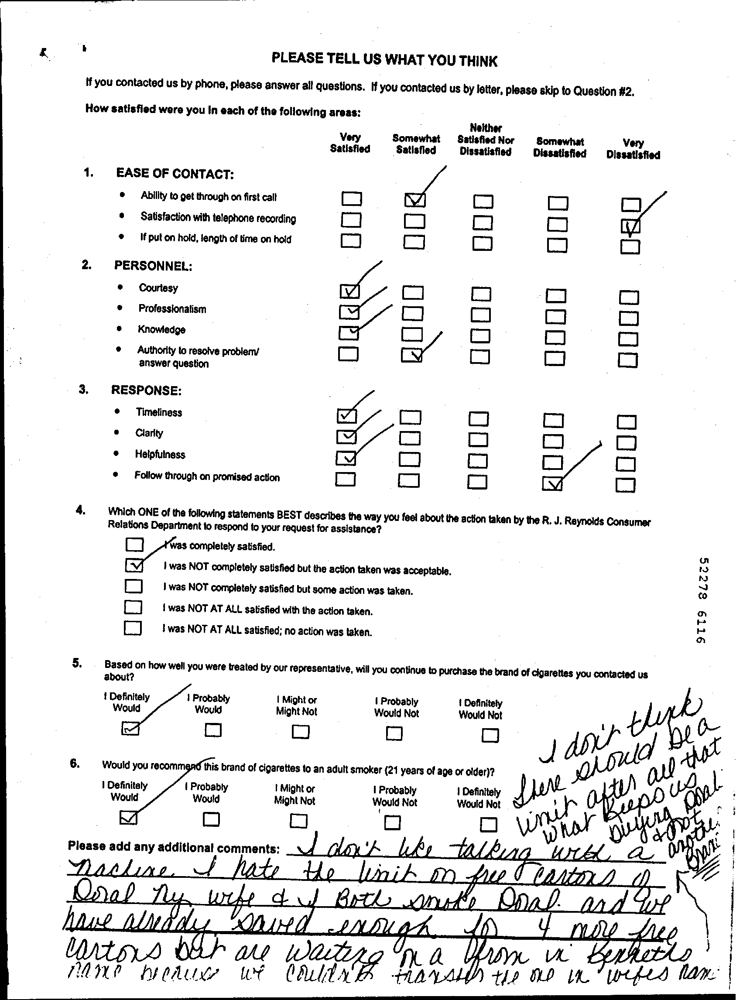 PLEASE TELL US WHAT YOU THINK
If you contacted us by phone, please answer all questions. If you contacted us by letter, please skip to Question #2.
How satisfied were you in each of the following areas:
Very Satisfied Somewhat Satisfied Neither Satisfied Nor Dissatisfied Somewhat Dissatisfied Very Dissatisfied
1. EASE OF CONTACT:
• Ability to get through on first call
• Satisfaction with telephone recording
• If put on hold, length of time on hold
2. PERSONNEL:
• Courtesy
• Professionalism
• Knowledge
• Authority to resolve problem/
answer question
3. RESPONSE:
• Timeliness
• Clarity
• Helpfulness
• Follow through on promised action
4. Which ONE of the following statements BEST describes the way you feel about the action taken by the R. J. Reynolds Consumer
Relations Department to respond to your request for assistance?
I was completely satisfied.
I was NOT completely satisfied but the action taken was acceptable.
I was NOT completely satisfied but some action was taken.
I was NOT AT ALL satisfied with the action taken.
I was NOT AT ALL satisfied; no action was taken.
52278 6116
5. Based on how well you were treated by our representative, will you continue to purchase the brand of cigarettes you contacted us
about?
I Definitely Would I Probably Would I Might or Might Not I Probably Would Not I Definitely Would Not
6. Would you recommend this brand of cigarettes to an adult smoker (21 years of age or older)?
I Definitely Would I Probably Would I Might or Might Not I Probably Would Not I Definitely Would Not
I don't think
there should be a
limit after all that
what keeps us
buying Doral
& not
another
Brand
Please add any additional comments: I don't like talking with a
machine I hate the limit on free cartons of
Doral My wife & I Both smoke Doral. and we
have already saved enough for 4 more free
cartons but are waiting on a from in Kenneths
name because we couldn't transfer the one in wifes nam